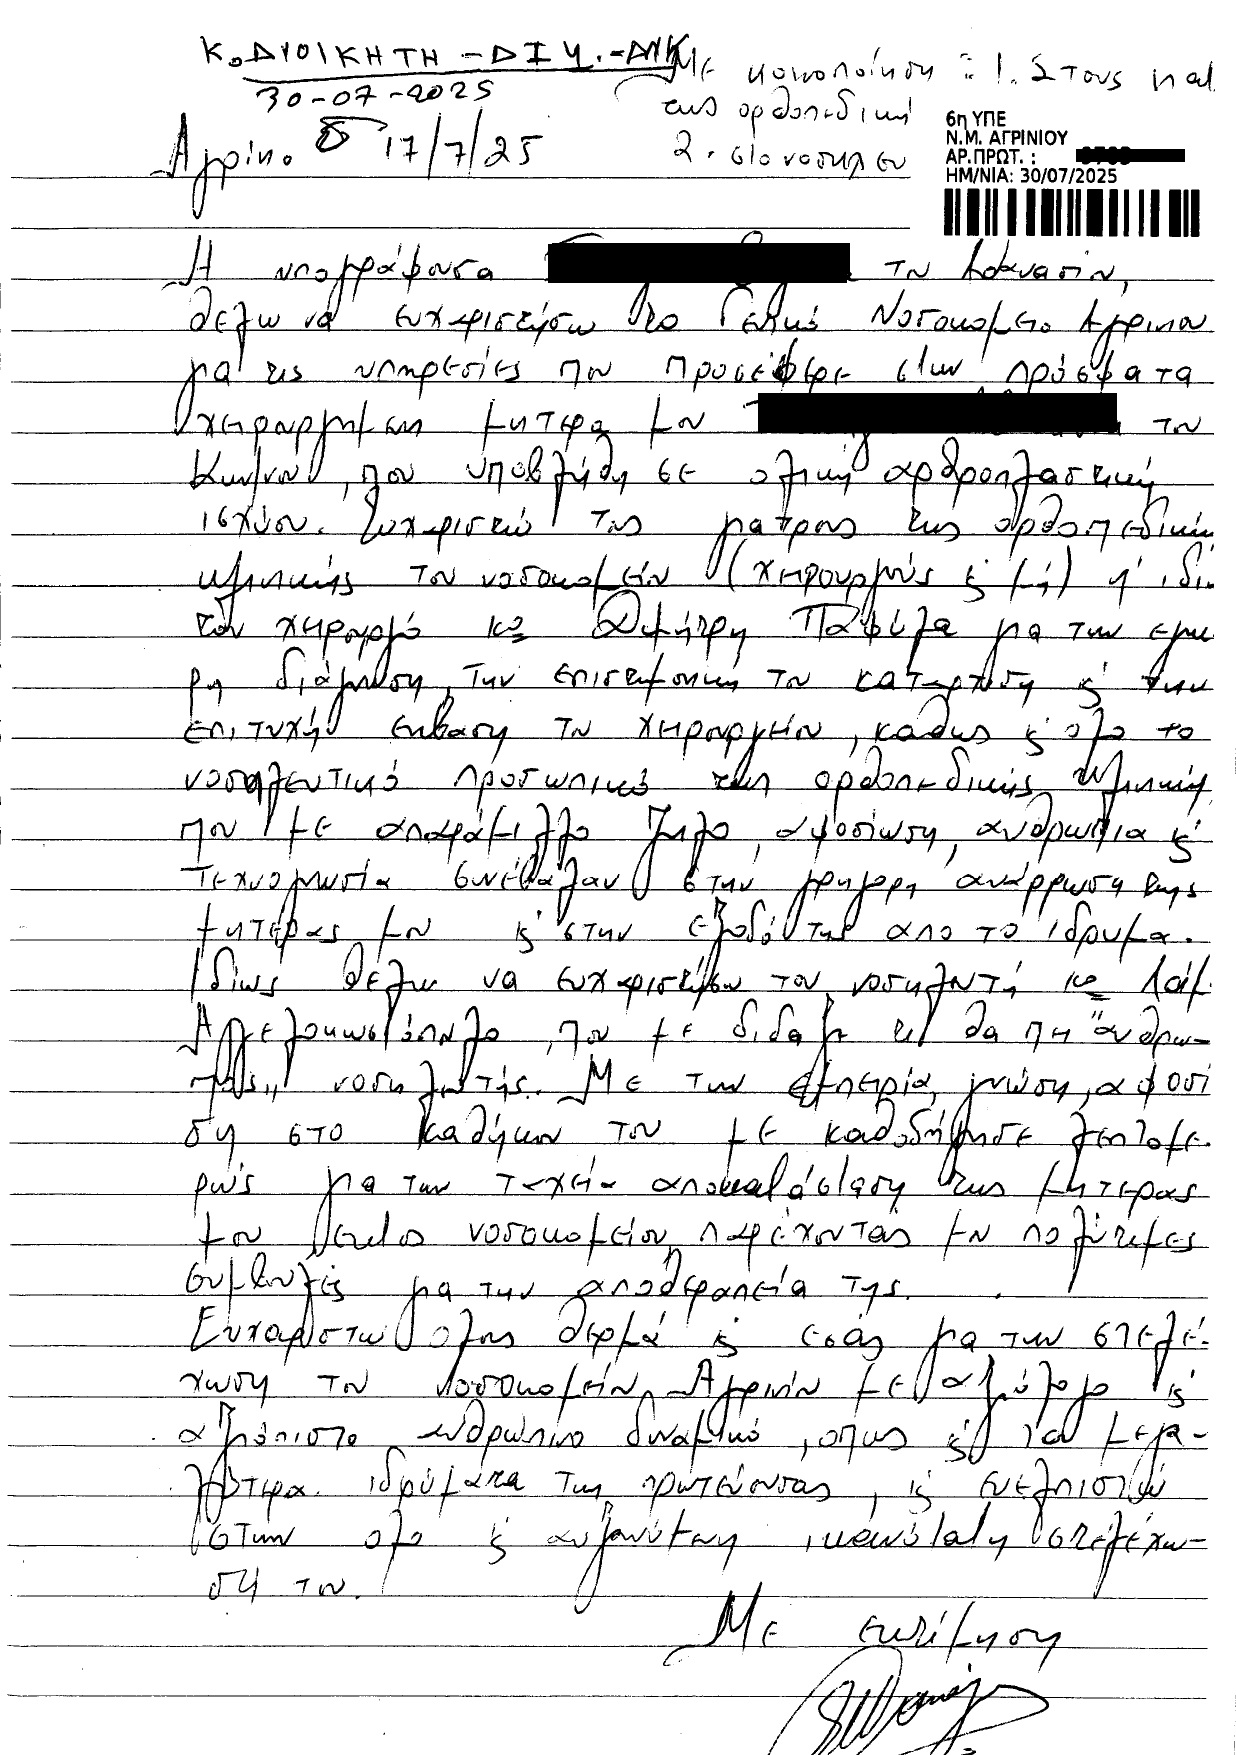 Κ. ΔΙΟΙΚΗΤΗ - ΔΙΥ. - ΔΝΚ
30-07-2025
Με κοινοποίηση : 1. Στους
της ορθοπεδική
2.
6η ΥΠΕ
Ν.Μ. ΑΓΡΙΝΙΟΥ
ΑΡ.ΠΡΩΤ. :
ΗΜ/ΝΙΑ: 30/07/2025
Αγρίνιο 17/7/25
Η υπογράφουσα του Αθανασίου,
θέλω να ευχαριστήσω το Γενικό Νοσοκομείο Αγρινίου
για τις υπηρεσίες που προσέφερε στην πρόσφατα
χειρουργημένη μητέρα μου του
που υποβλήθη σε ολική αρθροπλαστική
ισχύου. Ευχαριστώ τους γιατρούς της ορθοπεδικής
κλινικής του νοσοκομείου (χειρουργούς ξ μή) ή ιδι
τον χειρουργό κο Δημήτρη Παφίλα για την εγκυ
ρη διάγνωση, την επιστημονική του κατάρτιση ξ την
επιτυχή έκβαση του χειρουργείου, καθώς ξ όλο το
νοσηλευτικό προσωπικό της ορθοπεδικής κλινικής
που με απαράμιλλο ζήλο, αφοσίωση, ανθρωπιά ξ
τεχνογνωσία συνέβαλαν στην γρήγορη ανάρρωση της
μητέρας μου ξ στην έξοδό της απο το ίδρυμα.
Ιδίως θέλω να ευχαριστήσω τον νοσηλευτή κο Λάμ.
Αγγελοκωστόπουλο, που με δίδαξε τι θα πη "άνθρω-
πος" νοσηλευτής. Με την εμπειρία, γνώση, αφοσί
ση στο καθήκον του με καθοδήγησε λεπτομε
ρώς για την ταχεία αποκατάσταση της μητέρας
μου εκτός νοσοκομείου, παρέχοντας μου πολύτιμες
συμβουλές για την αποθεραπεία της.
Ευχαριστώ όλους θερμά ξ εσάς για την στελέ-
χωση του νοσοκομείου Αγρινίου με αξιόλογο ξ
αξιόπιστο ανθρώπινο δυναμικό, όπως ξ των μεγα-
λύτερα ιδρύματα της πρωτεύουσας, ξ ευελπιστώ
στην όλο ξ αυξανόμενη ικανόταtη στελέχω-
ση του.
Με εκτίμηση